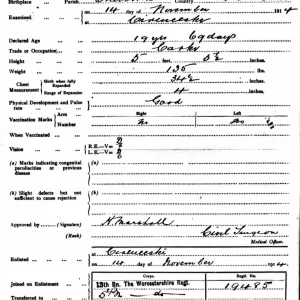 Birthplace Parish
Examined on 14 day of November 191 4
at Cirencester
Declared Age 19 yrs 69 days
Trade or Occupation
Height 5 feet 5½ inches.
Weight 135 lbs.
Chest Measurement Girth when fully Expanded 34½ inches.
Range of Expansion 4 inches.
Physical Development and Pulse rate Good
Right Left
Vaccination Marks Arm No
Number
When Vaccinated
Vision R.E.—V=
L.E.—V=
(a) Marks indicating congenital peculiarities or previous disease
(b) Slight defects but not sufficient to cause rejection
Approved by (Signature) H. Marshall
(Rank) Civil Surgeon
Medical Officer.
Enlisted at Cirencester
on 14 day of November 1914
Corps. Regtl. No.
Joined on Enlistment 13th Bn. The Worcestershire Regt. 19485
Transferred to 5th Bn do